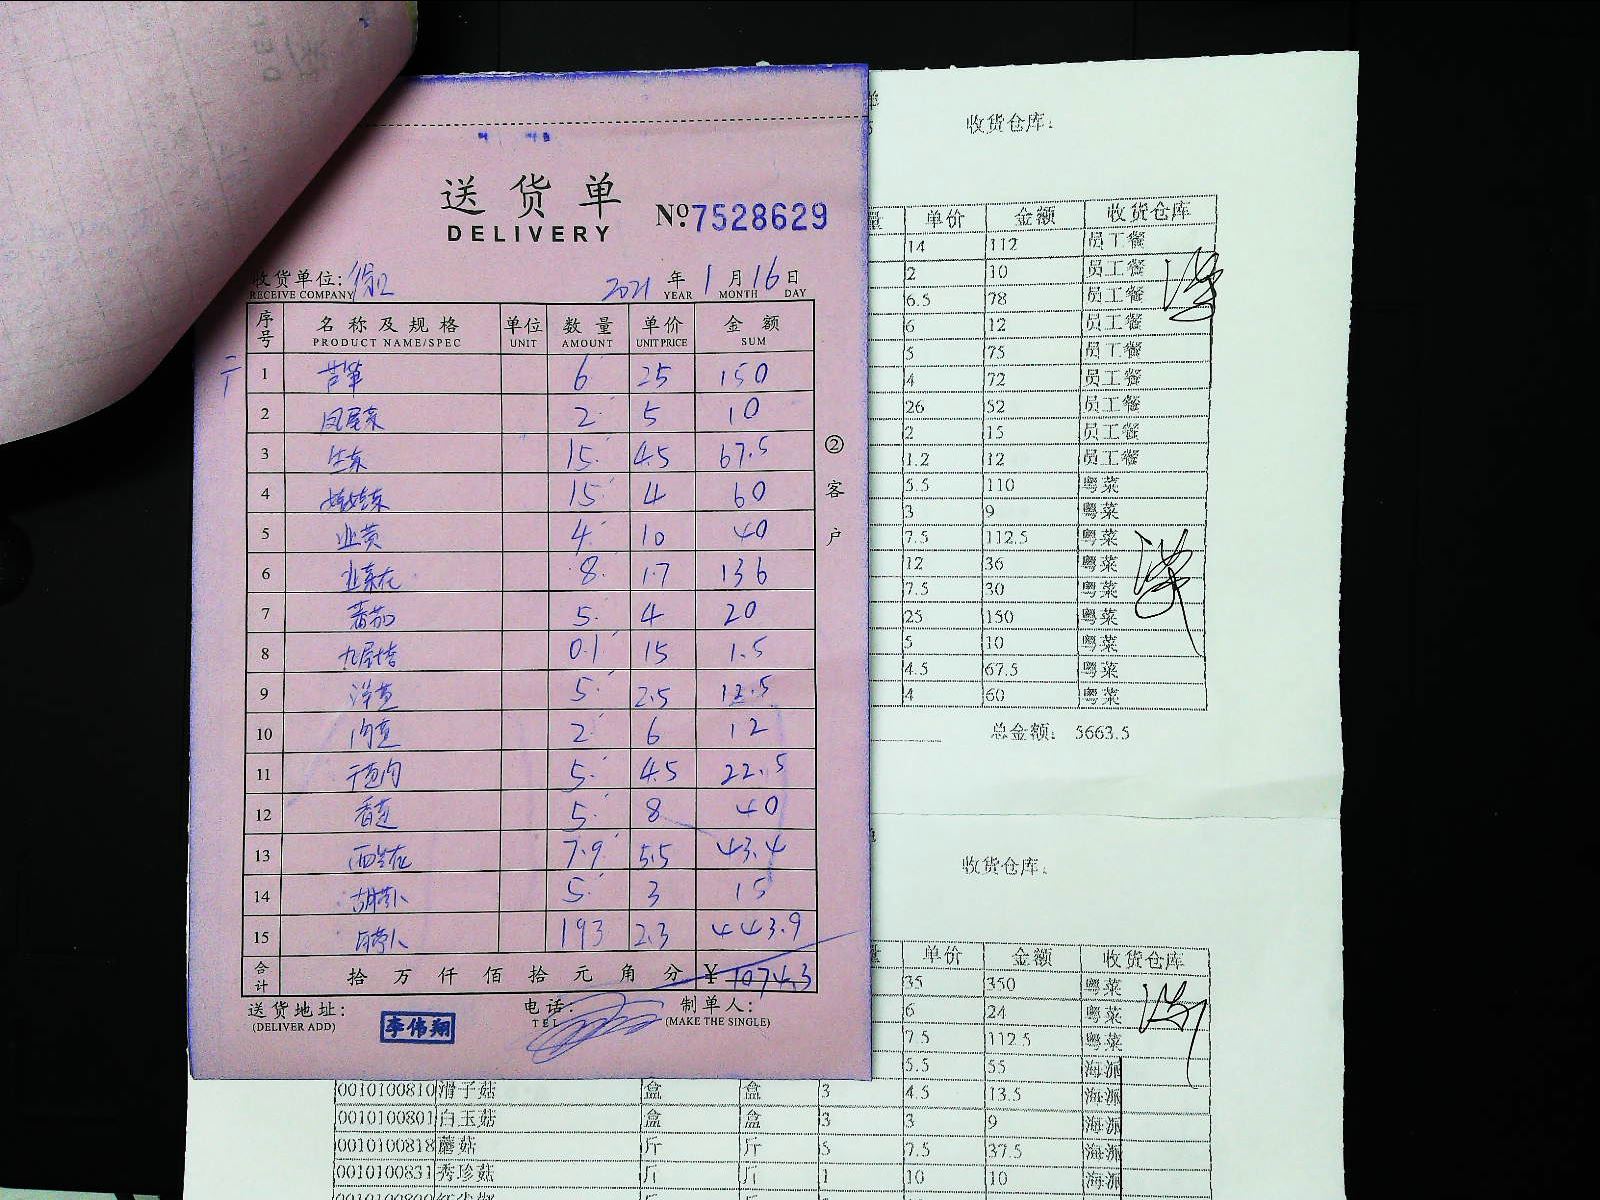 送货单
DELIVERY
№ 7528629
收货单位:
RECEIVE COMPANY
2021 年 1 月 16 日
YEAR MONTH DAY
序号 名称及规格 单位 数量 单价 金额
PRODUCT NAME/SPEC UNIT AMOUNT UNIT PRICE SUM
1 芦笋 6 25 150
2 凤尾菜 2 5 10
3 生菜 15 4.5 67.5
4 娃娃菜 15 4 60
5 韭黄 4 10 40
6 韭菜花 8 17 136
7 番茄 5 4 20
8 九层塔 0.1 15 1.5
9 洋芋 5 2.5 12.5
10 2 6 12
11 5 4.5 22.5
12 5 8 40
13 西兰花 7.9 5.5 43.4
14 胡萝卜 5 3 15
15 白萝卜 193 2.3 443.9
合计 拾万仟佰拾元角分 ¥ 1074.3
送货地址: 电话: 制单人:
(DELIVER ADD) TEL (MAKE THE SINGLE)
李伟翔
②客户
收货仓库:
量 单价 金额 收货仓库
14 112 员工餐
2 10 员工餐
6.5 78 员工餐
6 12 员工餐
5 75 员工餐
4 72 员工餐
26 52 员工餐
2 15 员工餐
1.2 12 员工餐
5.5 110 粤菜
3 9 粤菜
7.5 112.5 粤菜
12 36 粤菜
7.5 30 粤菜
25 150 粤菜
5 10 粤菜
4.5 67.5 粤菜
4 60 粤菜
总金额: 5663.5
收货仓库:
量 单价 金额 收货仓库
35 350 粤菜
6 24 粤菜
7.5 112.5 粤菜
5.5 55 海派
0010100810 滑子菇 盒 盒 3 4.5 13.5 海派
0010100801 白玉菇 盒 盒 3 3 9 海派
0010100818 蘑菇 斤 斤 5 7.5 37.5 海派
0010100831 秀珍菇 斤 斤 1 10 10 海派